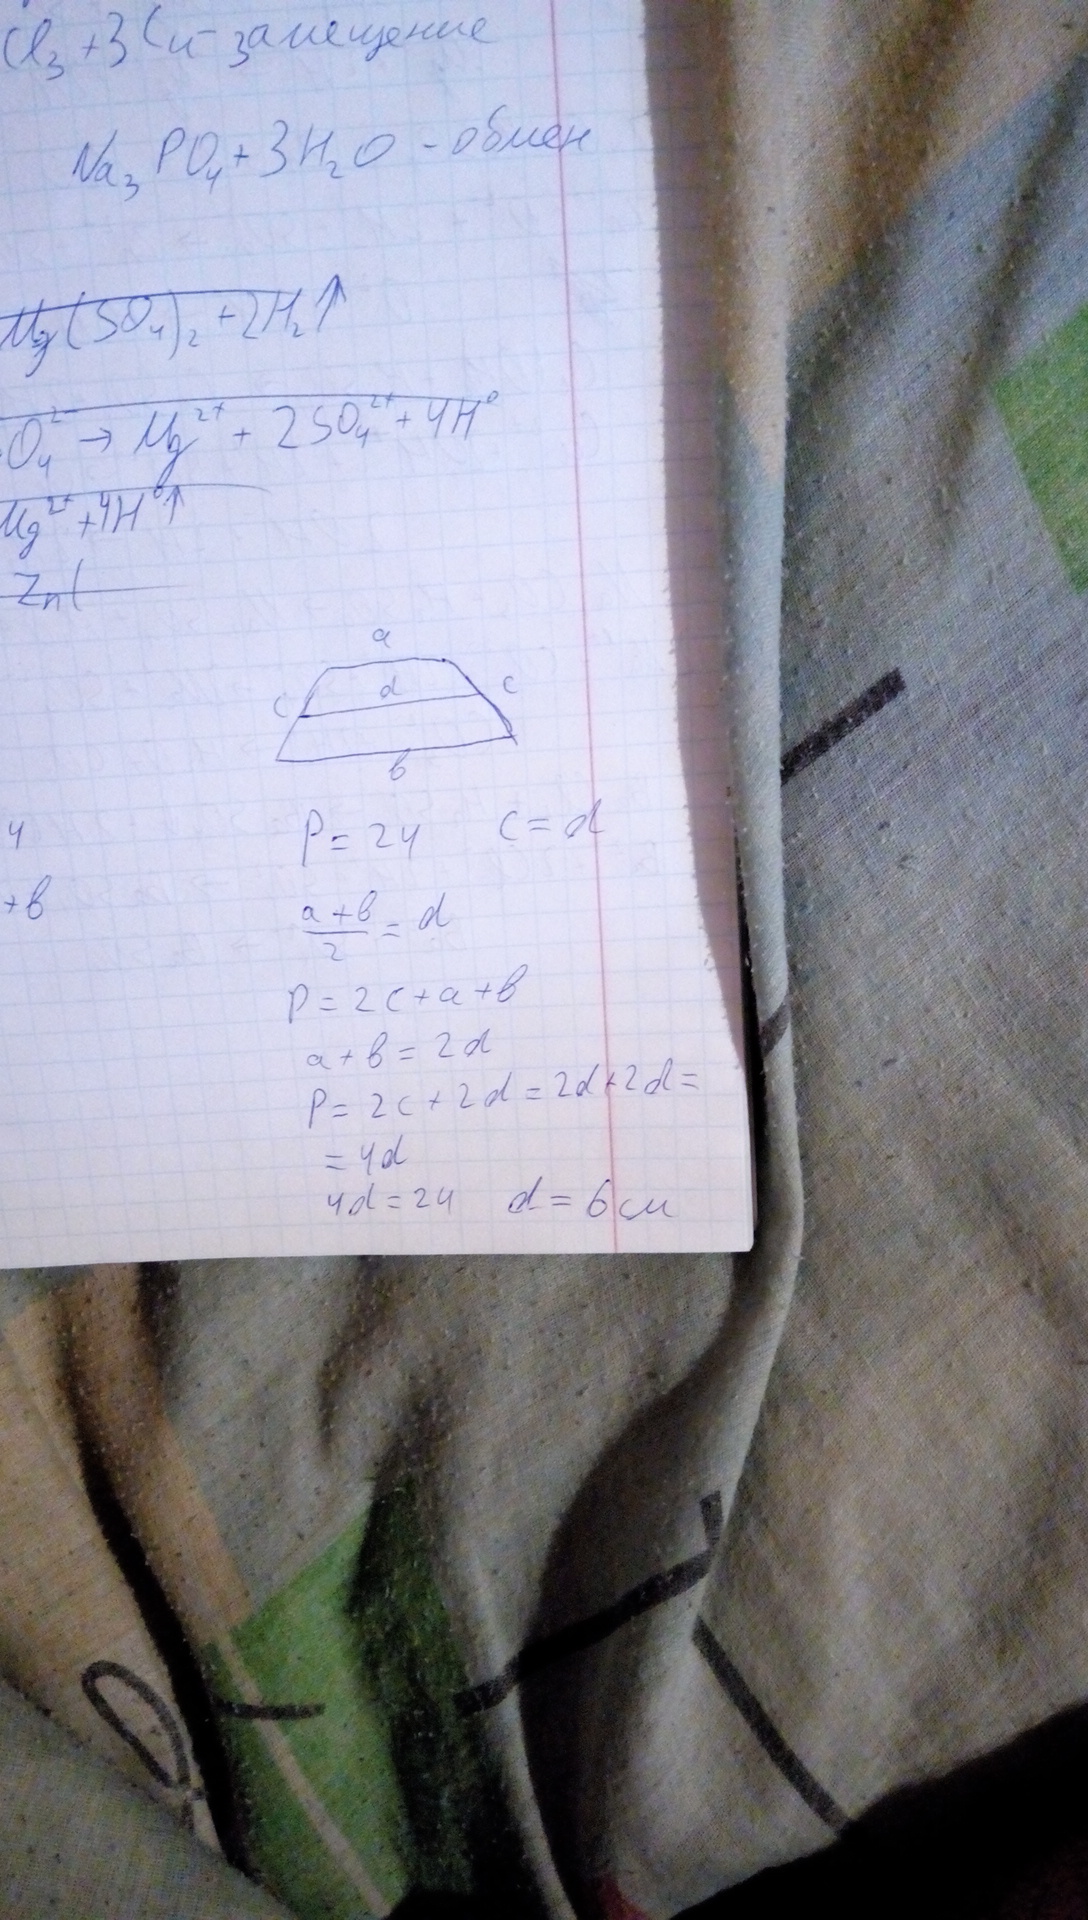 Cl₃ + 3Cu - замещение
Na₃PO₄ + 3H₂O - обмен
Mg(SO₄)₂ + 2H₂↑
O₄²⁻ → Mg²⁺ + 2SO₄²⁺ + 4H⁰
Mg²⁺ + 4H⁰↑
Zn(
a
c d c
в
4
P = 24 c = d
+ в
(a + в)/2 = d
P = 2c + a + в
a + в = 2d
P = 2c + 2d = 2d + 2d =
= 4d
4d = 24 d = 6 см